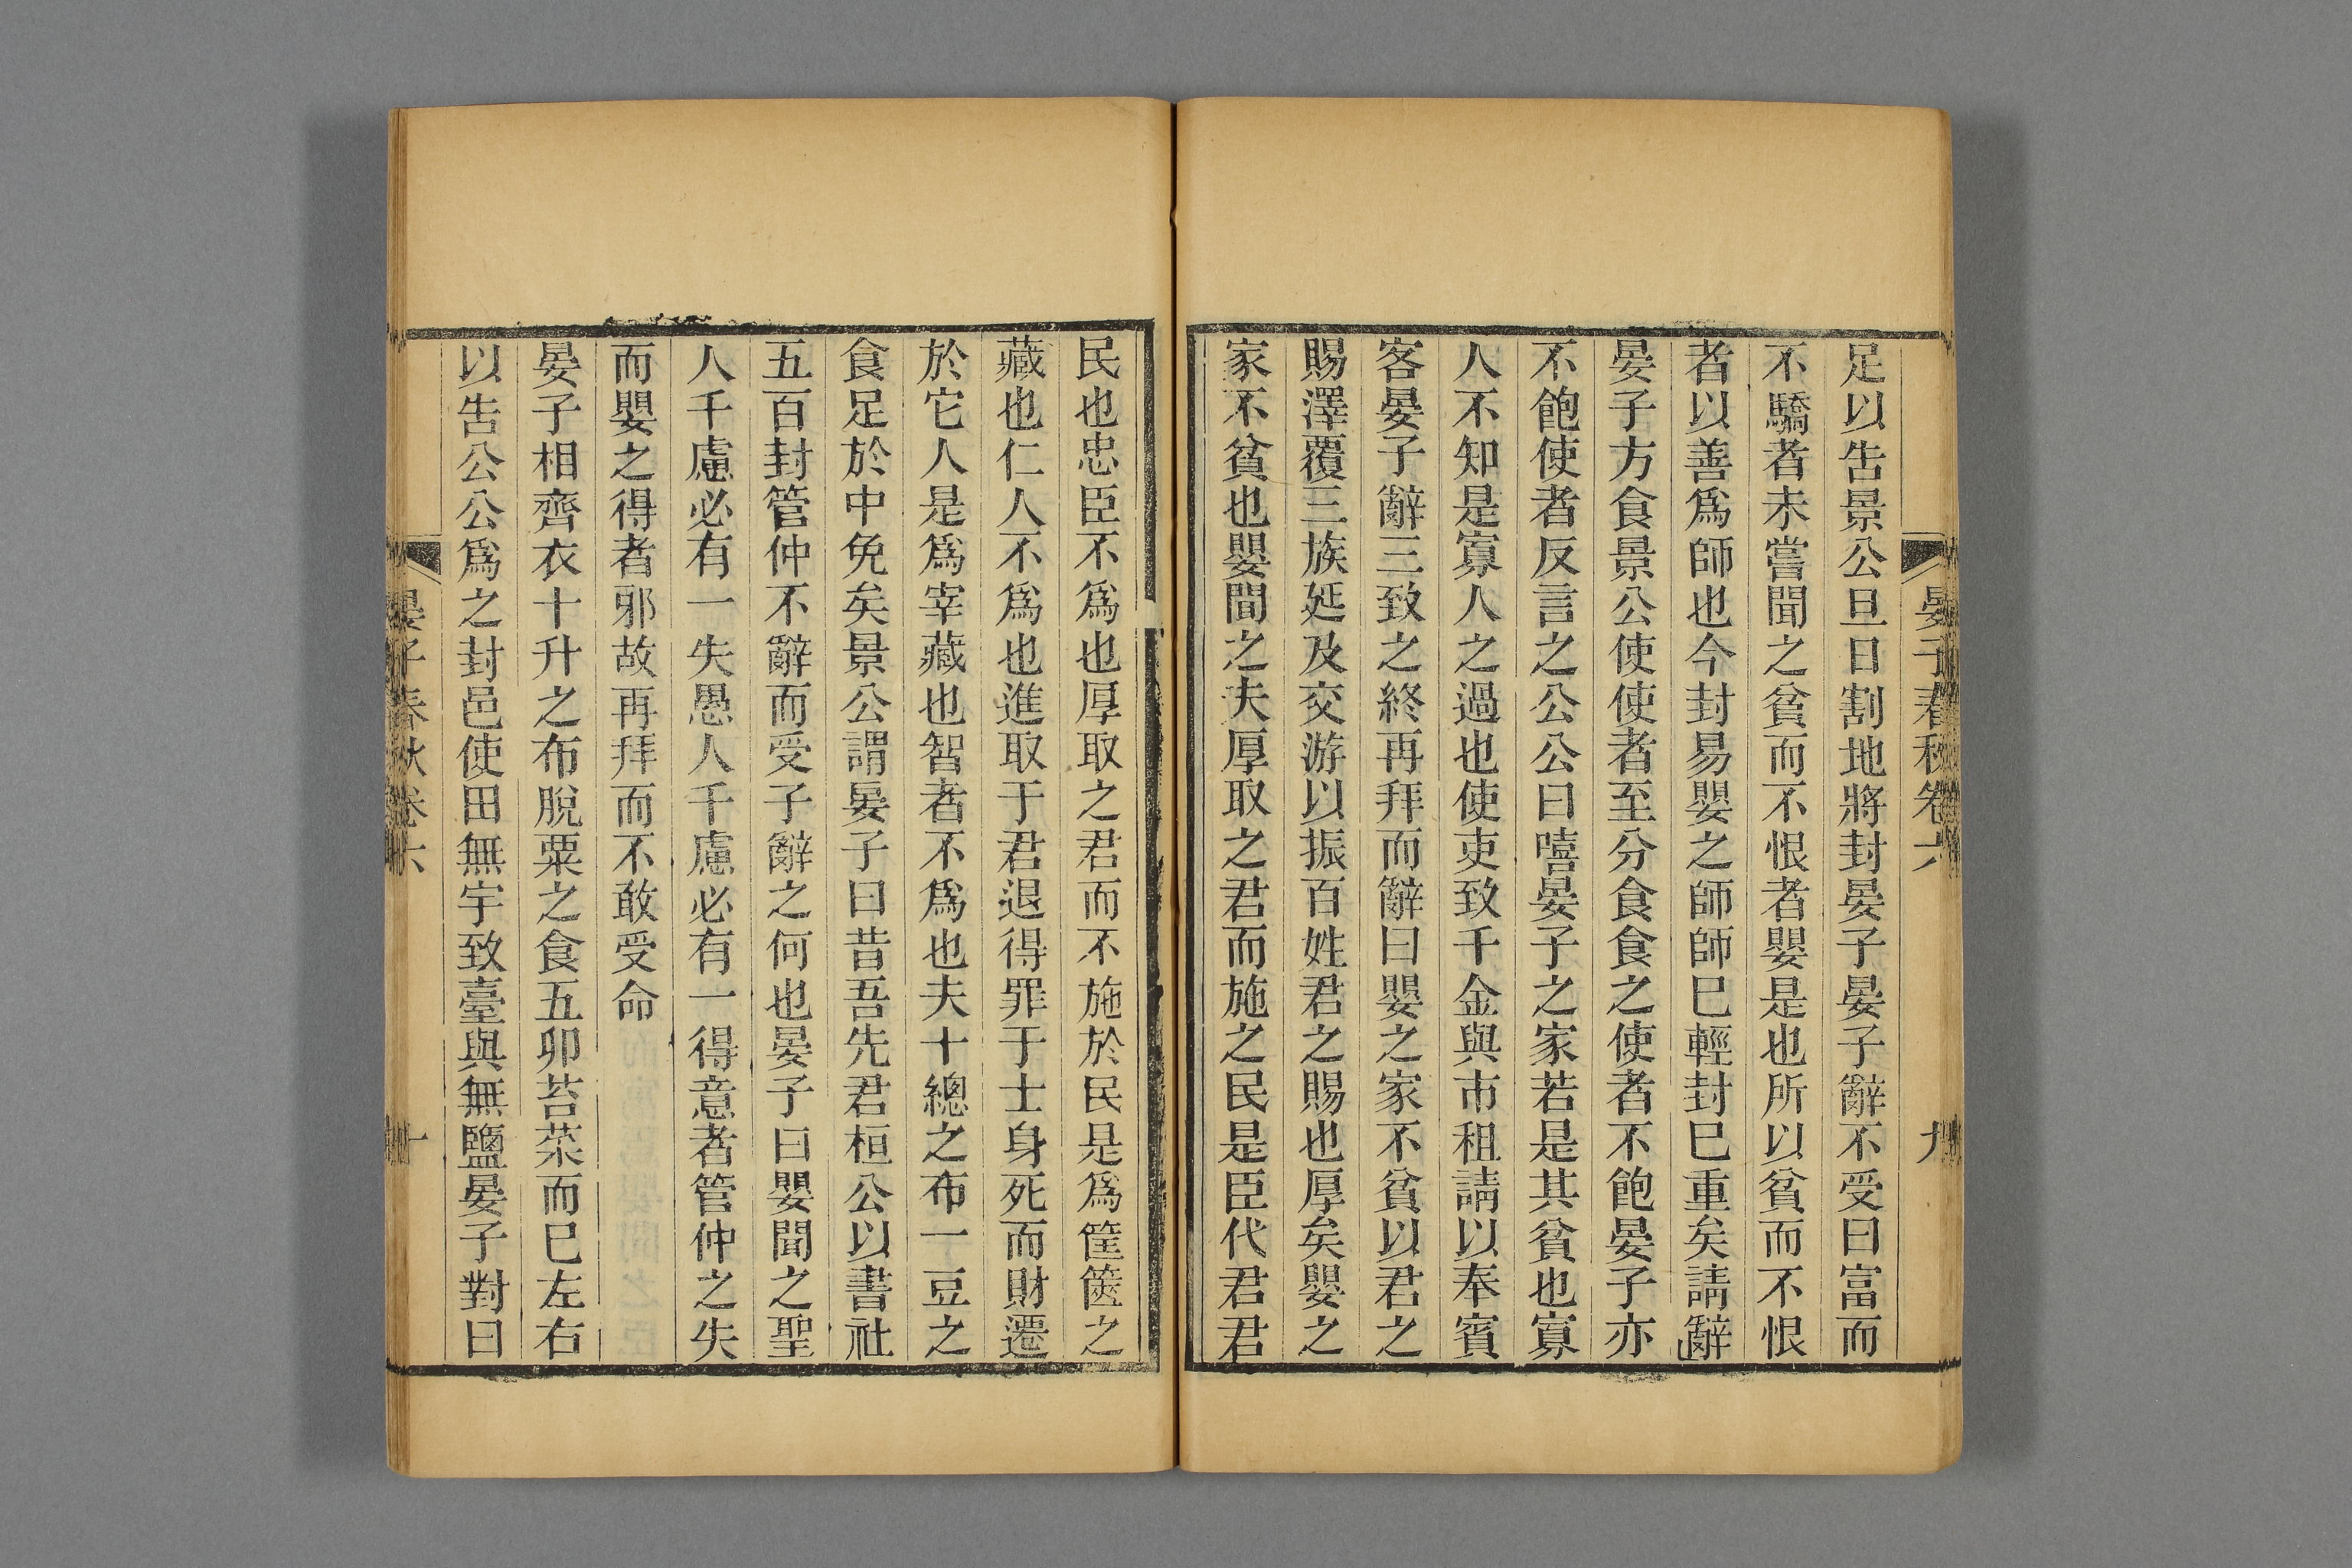 晏子春秋卷六 九
足以告景公旦日割地將封晏子晏子辭不受曰富而
不驕者未嘗聞之貧而不恨者嬰是也所以貧而不恨
者以善爲師也今封易嬰之師師已輕封已重矣請辭
晏子方食景公使使者至分食食之使者不飽晏子亦
不飽使者反言之公公曰嘻晏子之家若是其貧也寡
人不知是寡人之過也使吏致千金與市租請以奉賓
客晏子辭三致之終再拜而辭曰嬰之家不貧以君之
賜澤覆三族延及交游以振百姓君之賜也厚矣嬰之
家不貧也嬰聞之夫厚取之君而施之民是臣代君君
民也忠臣不爲也厚取之君而不施於民是爲筐篋之
藏也仁人不爲也進取于君退得罪于士身死而財遷
於它人是爲宰藏也智者不爲也夫十總之布一豆之
食足於中免矣景公謂晏子曰昔吾先君桓公以書社
五百封管仲不辭而受子辭之何也晏子曰嬰聞之聖
人千慮必有一失愚人千慮必有一得意者管仲之失
而嬰之得者邪故再拜而不敢受命
晏子相齊衣十升之布脫粟之食五卯苔菜而已左右
以告公公爲之封邑使田無宇致臺與無鹽晏子對曰
晏子春秋卷六 十